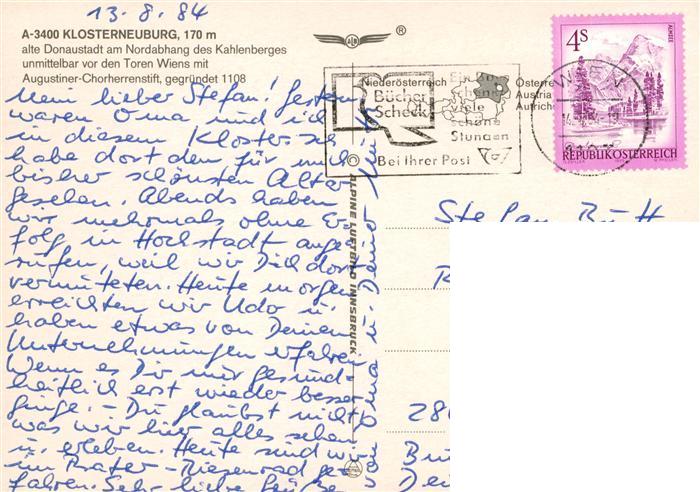 13.8.84
A-3400 KLOSTERNEUBURG, 170 m
alte Donaustadt am Nordabhang des Kahlenberges
unmittelbar vor den Toren Wiens mit
Augustiner-Chorherrenstift, gegründet 1108
ALB ®
Mein lieber Stefan! Gestern
waren Oma und ich
in diesem Kloster. Ich
habe dort den für mich
bisher schönsten Altar
gesehen. Abends haben
wir mehrmals ohne Er-
folg in Hochstadt ange-
rufen, weil wir Dich dort
vermuteten. Heute morgen
erreichten wir Udo u.
haben etwas von Deinen
Unternehmungen erfahren
Wenn es Dir nur gesund-
heitlich erst wieder besser
ginge. - Du glaubst nicht
was wir hier alles sehen
u. erleben. Heute sind wir
im Prater-Riesenrad ge-
fahren. Sehr liebe Grüße
Deiner Mutti u. Omi
ALPINE LUFTBILD INNSBRUCK
Niederösterreich
Bücher
Scheck
viele
schöne
Stunden
Bei Ihrer Post
Österre
Austria
Autriche
WIEN
4S
ALMSEE
REPUBLIK ÖSTERREICH
Stefan Butt
R
280
Bu
Dei